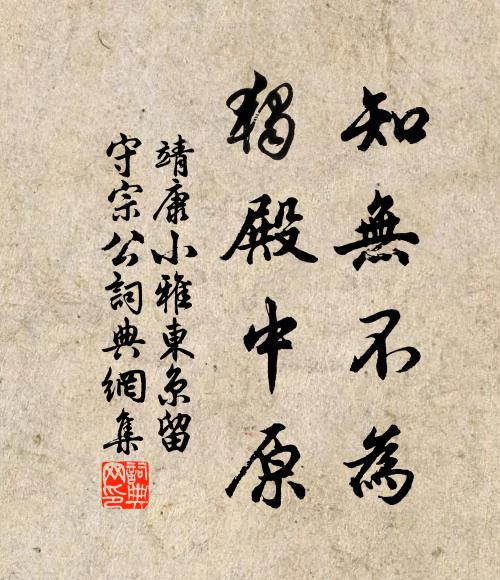 知無不為
獨殿中原
靖康小雅東京留
守宗公詞典網集
詞典网印